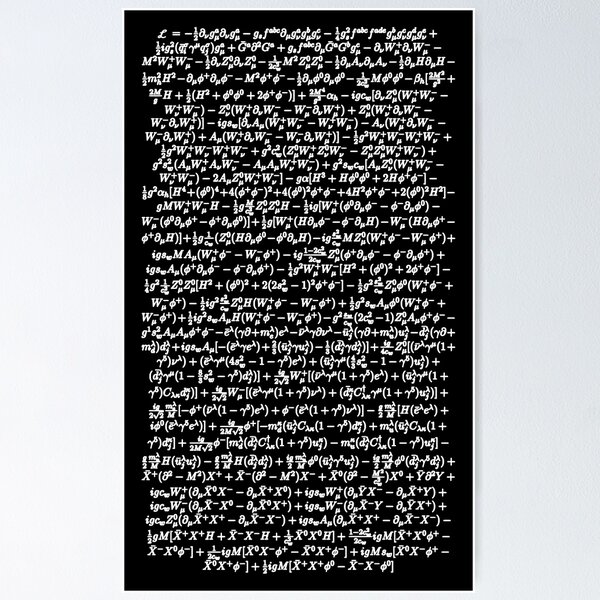 ℒ = -\frac{1}{2}∂_νg^a_μ∂_νg^a_μ - g_sf^{abc}∂_μg^a_νg^b_μg^c_ν - \frac{1}{4}g^2_sf^{abc}f^{ade}g^b_μg^c_νg^d_μg^e_ν +
\frac{1}{2}ig^2_s(\bar{q}^σ_iγ^μq^σ_j)g^a_μ + \bar{G}^a∂^2G^a + g_sf^{abc}∂_μ\bar{G}^aG^bg^c_μ - ∂_νW^+_μ∂_νW^-_μ -
M^2W^+_μW^-_μ - \frac{1}{2}∂_νZ^0_μ∂_νZ^0_μ - \frac{1}{2c^2_w}M^2Z^0_μZ^0_μ - \frac{1}{2}∂_μA_ν∂_μA_ν - \frac{1}{2}∂_μH∂_μH -
\frac{1}{2}m^2_hH^2 - ∂_μφ^+∂_μφ^- - M^2φ^+φ^- - \frac{1}{2}∂_μφ^0∂_μφ^0 - \frac{1}{2c^2_w}Mφ^0φ^0 - β_h[\frac{2M^2}{g^2} +
\frac{2M}{g}H + \frac{1}{2}(H^2 + φ^0φ^0 + 2φ^+φ^-)] + \frac{2M^4}{g^2}α_h - igc_w[∂_νZ^0_μ(W^+_μW^-_ν -
W^+_νW^-_μ) - Z^0_ν(W^+_μ∂_νW^-_μ - W^-_μ∂_νW^+_μ) + Z^0_μ(W^+_ν∂_νW^-_μ -
W^-_ν∂_νW^+_μ)] - igs_w[∂_νA_μ(W^+_μW^-_ν - W^+_νW^-_μ) - A_ν(W^+_μ∂_νW^-_μ -
W^-_μ∂_νW^+_μ) + A_μ(W^+_ν∂_νW^-_μ - W^-_ν∂_νW^+_μ)] - \frac{1}{2}g^2W^+_μW^-_μW^+_νW^-_ν +
\frac{1}{2}g^2W^+_μW^-_νW^+_μW^-_ν + g^2c^2_w(Z^0_μW^+_μZ^0_νW^-_ν - Z^0_μZ^0_μW^+_νW^-_ν) +
g^2s^2_w(A_μW^+_μA_νW^-_ν - A_μA_μW^+_νW^-_ν) + g^2s_wc_w[A_μZ^0_ν(W^+_μW^-_ν -
W^+_νW^-_μ) - 2A_μZ^0_μW^+_νW^-_ν] - gα[H^3 + Hφ^0φ^0 + 2Hφ^+φ^-] -
\frac{1}{8}g^2α_h[H^4+(φ^0)^4+4(φ^+φ^-)^2+4(φ^0)^2φ^+φ^-+4H^2φ^+φ^-+2(φ^0)^2H^2] -
gMW^+_μW^-_μH - \frac{1}{2}g\frac{M}{c^2_w}Z^0_μZ^0_μH - \frac{1}{2}ig[W^+_μ(φ^0∂_μφ^- - φ^-∂_μφ^0) -
W^-_μ(φ^0∂_μφ^+ - φ^+∂_μφ^0)] + \frac{1}{2}g[W^+_μ(H∂_μφ^- - φ^-∂_μH) - W^-_μ(H∂_μφ^+ -
φ^+∂_μH)] + \frac{1}{2}g\frac{1}{c_w}(Z^0_μ(H∂_μφ^0 - φ^0∂_μH) - ig\frac{s^2_w}{c_w}MZ^0_μ(W^+_μφ^- - W^-_μφ^+) +
igs_wMA_μ(W^+_μφ^- - W^-_μφ^+) - ig\frac{1-2c^2_w}{2c_w}Z^0_μ(φ^+∂_μφ^- - φ^-∂_μφ^+) +
igs_wA_μ(φ^+∂_μφ^- - φ^-∂_μφ^+) - \frac{1}{4}g^2W^+_μW^-_μ[H^2 + (φ^0)^2 + 2φ^+φ^-] -
\frac{1}{4}g^2\frac{1}{c^2_w}Z^0_μZ^0_μ[H^2 + (φ^0)^2 + 2(2s^2_w - 1)^2φ^+φ^-] - \frac{1}{2}g^2\frac{s^2_w}{c_w}Z^0_μφ^0(W^+_μφ^- +
W^-_μφ^+) - \frac{1}{2}ig^2\frac{s^2_w}{c_w}Z^0_μH(W^+_μφ^- - W^-_μφ^+) + \frac{1}{2}g^2s_wA_μφ^0(W^+_μφ^- +
W^-_μφ^+) + \frac{1}{2}ig^2s_wA_μH(W^+_μφ^- - W^-_μφ^+) - g^2\frac{s_w}{c_w}(2c^2_w - 1)Z^0_μA_μφ^+φ^- -
g^1s^2_wA_μA_μφ^+φ^- - \bar{e}^λ(γ∂ + m^λ_e)e^λ - \bar{ν}^λγ∂ν^λ - \bar{u}^λ_j(γ∂ + m^λ_u)u^λ_j - \bar{d}^λ_j(γ∂ +
m^λ_d)d^λ_j + igs_wA_μ[-(\bar{e}^λγe^λ) + \frac{2}{3}(\bar{u}^λ_jγu^λ_j) - \frac{1}{3}(\bar{d}^λ_jγd^λ_j)] + \frac{ig}{4c_w}Z^0_μ[(\bar{ν}^λγ^μ(1 +
γ^5)ν^λ) + (\bar{e}^λγ^μ(4s^2_w - 1 - γ^5)e^λ) + (\bar{u}^λ_jγ^μ(\frac{4}{3}s^2_w - 1 - γ^5)u^λ_j) +
(\bar{d}^λ_jγ^μ(1 - \frac{8}{3}s^2_w - γ^5)d^λ_j)] + \frac{ig}{2√2}W^+_μ[(\bar{ν}^λγ^μ(1 + γ^5)e^λ) + (\bar{u}^λ_jγ^μ(1 +
γ^5)C_{λκ}d^κ_j)] + \frac{ig}{2√2}W^-_μ[(\bar{e}^λγ^μ(1 + γ^5)ν^λ) + (\bar{d}^κ_jC^†_{λκ}γ^μ(1 + γ^5)u^λ_j)] +
\frac{ig}{2√2}\frac{m^λ_e}{M}[-φ^+(\bar{ν}^λ(1 - γ^5)e^λ) + φ^-(\bar{e}^λ(1 + γ^5)ν^λ)] - \frac{g}{2}\frac{m^λ_e}{M}[H(\bar{e}^λe^λ) +
iφ^0(\bar{e}^λγ^5e^λ)] + \frac{ig}{2M√2}φ^+[-m^κ_d(\bar{u}^λ_jC_{λκ}(1 - γ^5)d^κ_j) + m^λ_u(\bar{u}^λ_jC_{λκ}(1 +
γ^5)d^κ_j] + \frac{ig}{2M√2}φ^-[m^λ_d(\bar{d}^λ_jC^†_{λκ}(1 + γ^5)u^κ_j) - m^κ_u(\bar{d}^λ_jC^†_{λκ}(1 - γ^5)u^κ_j] -
\frac{g}{2}\frac{m^λ_u}{M}H(\bar{u}^λ_ju^λ_j) - \frac{g}{2}\frac{m^λ_d}{M}H(\bar{d}^λ_jd^λ_j) + \frac{ig}{2}\frac{m^λ_u}{M}φ^0(\bar{u}^λ_jγ^5u^λ_j) - \frac{ig}{2}\frac{m^λ_d}{M}φ^0(\bar{d}^λ_jγ^5d^λ_j) +
\bar{X}^+(∂^2 - M^2)X^+ + \bar{X}^-(∂^2 - M^2)X^- + \bar{X}^0(∂^2 - \frac{M^2}{c^2_w})X^0 + \bar{Y}∂^2Y +
igc_wW^+_μ(∂_μ\bar{X}^0X^- - ∂_μ\bar{X}^+X^0) + igs_wW^+_μ(∂_μ\bar{Y}X^- - ∂_μ\bar{X}^+Y) +
igc_wW^-_μ(∂_μ\bar{X}^-X^0 - ∂_μ\bar{X}^0X^+) + igs_wW^-_μ(∂_μ\bar{X}^-Y - ∂_μ\bar{Y}X^+) +
igc_wZ^0_μ(∂_μ\bar{X}^+X^+ - ∂_μ\bar{X}^-X^-) + igs_wA_μ(∂_μ\bar{X}^+X^+ - ∂_μ\bar{X}^-X^-) -
\frac{1}{2}gM[\bar{X}^+X^+H + \bar{X}^-X^-H + \frac{1}{c^2_w}\bar{X}^0X^0H] + \frac{1-2c^2_w}{2c_w}igM[\bar{X}^+X^0φ^+ -
\bar{X}^-X^0φ^-] + \frac{1}{2c_w}igM[\bar{X}^0X^-φ^+ - \bar{X}^0X^+φ^-] + igMs_w[\bar{X}^0X^-φ^+ -
\bar{X}^0X^+φ^-] + \frac{1}{2}igM[\bar{X}^+X^+φ^0 - \bar{X}^-X^-φ^0]